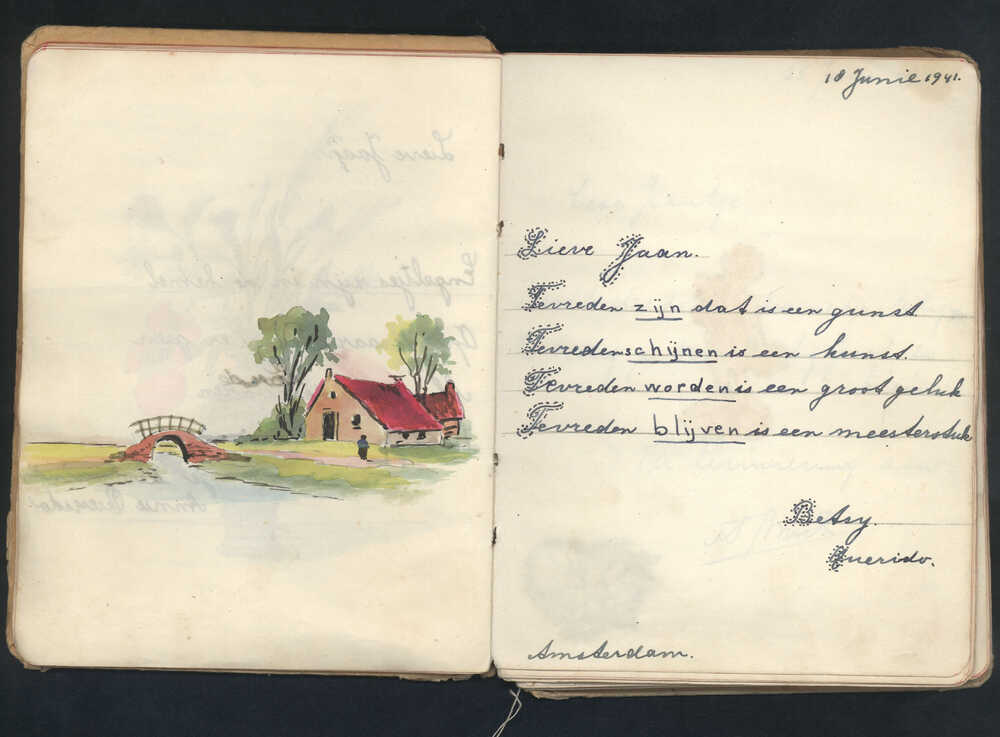 18 Junie 1941.
Lieve Jaan.
Tevreden zijn dat is een gunst
Tevreden schijnen is een kunst.
Tevreden worden is een groot geluk
Tevreden blijven is een meesterstuk
Betsy.
Querido.
Amsterdam.